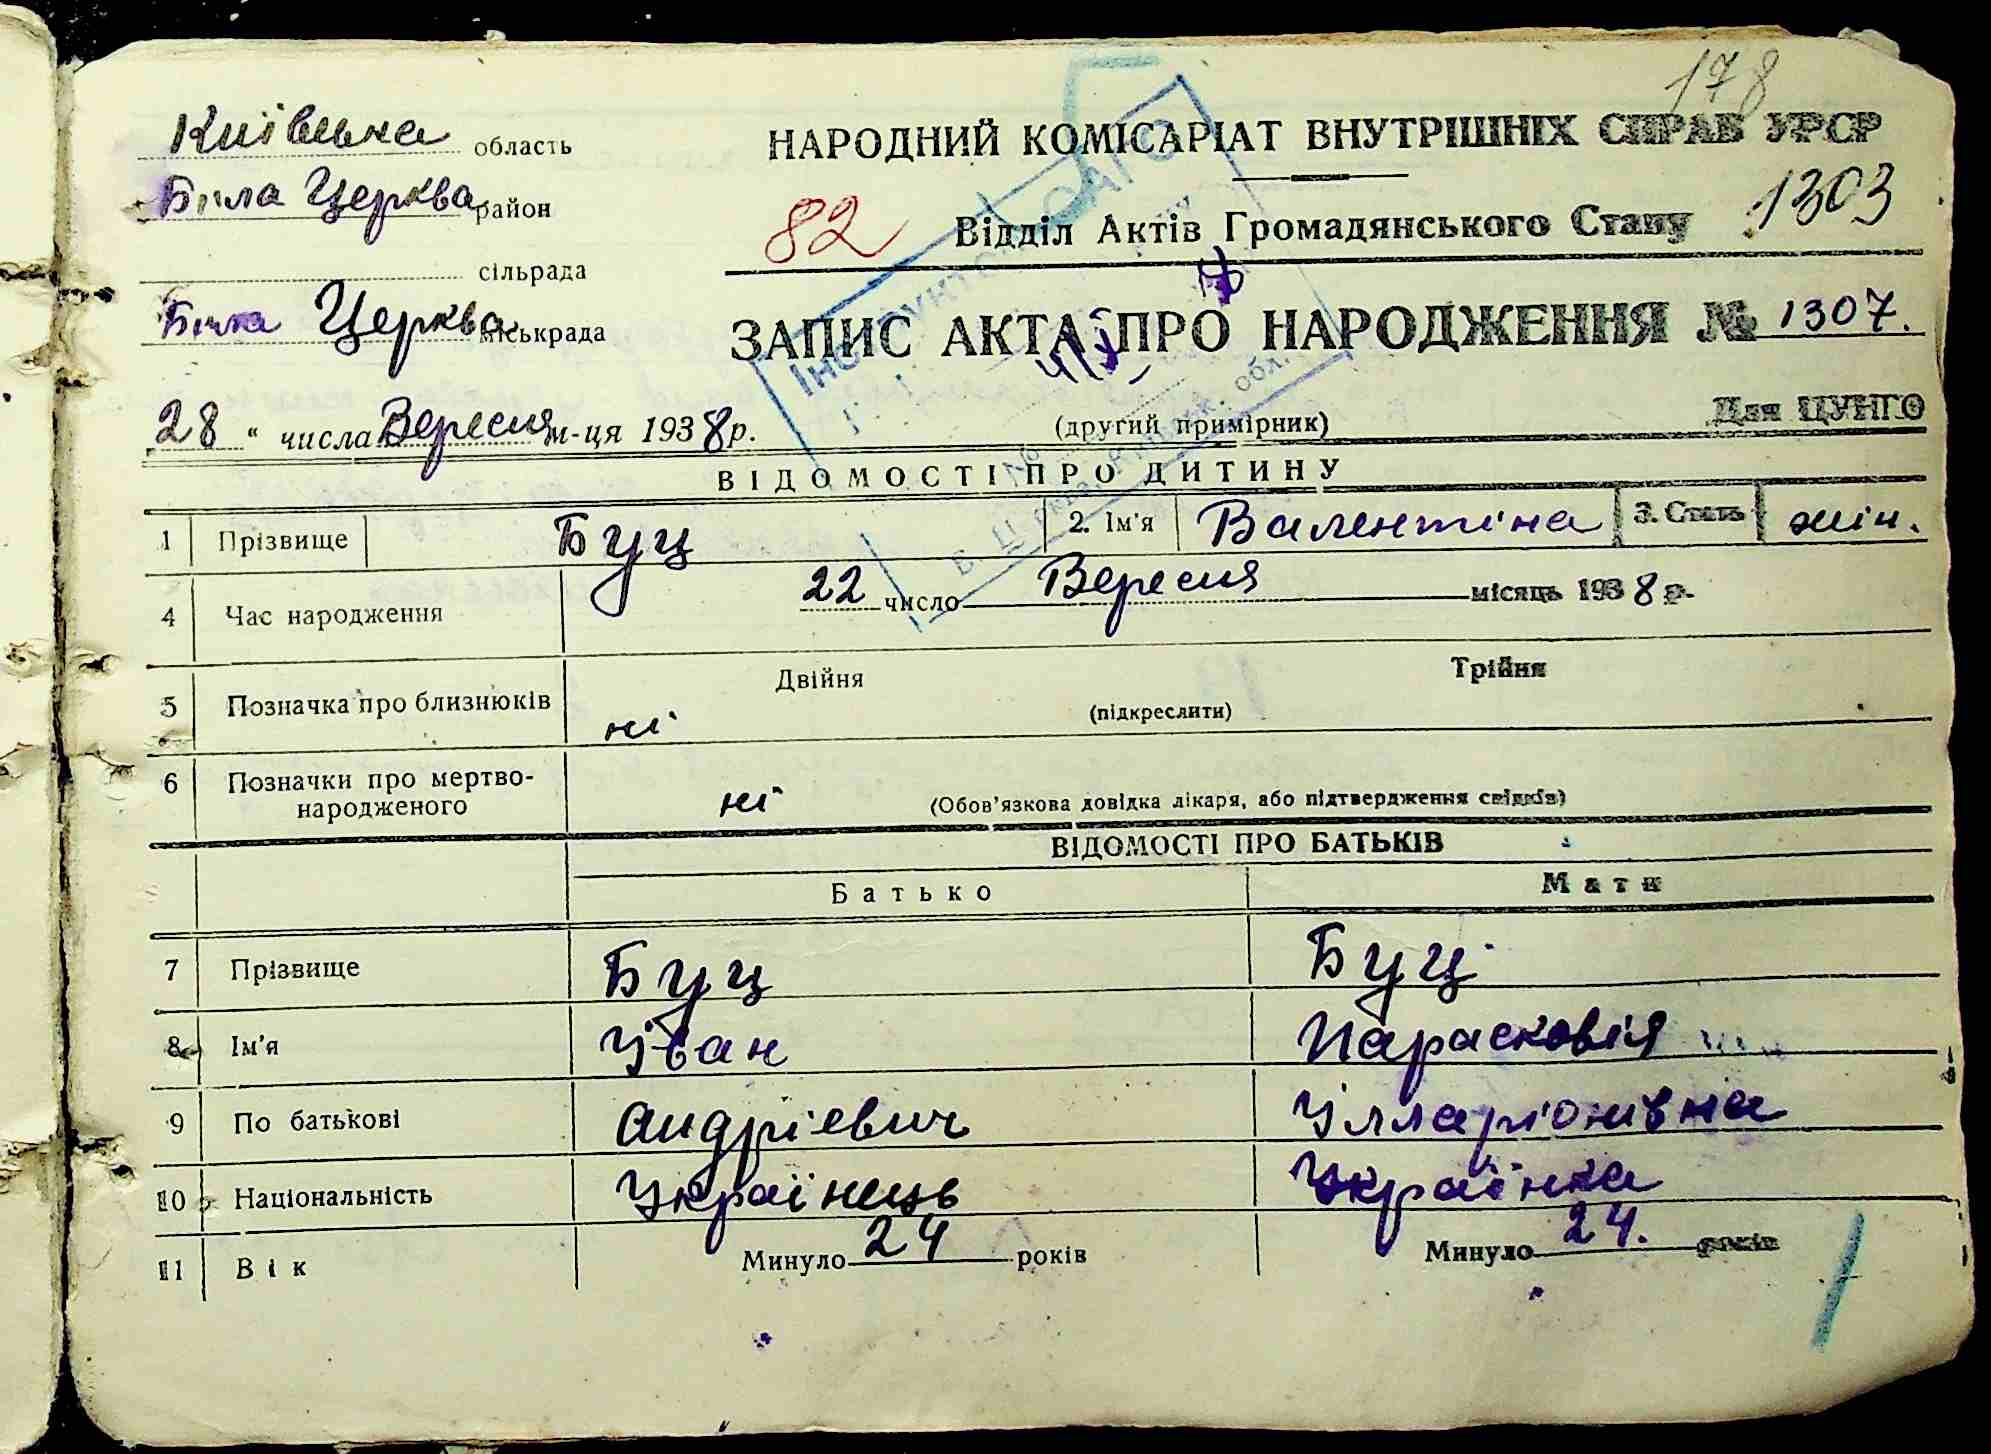 178
Київська область
Біла Церква район
сільрада
Біла Церква міськрада
28 " числа Вересня м-ця 1938 р.
НАРОДНИЙ КОМІСАРІАТ ВНУТРІШНІХ СПРАВ УРСР
82 Відділ Актів Громадянського Стану 1303
ЗАПИС АКТА ПРО НАРОДЖЕННЯ № 1307.
(другий примірник)
Для ЦУНГО
ВІДОМОСТІ ПРО ДИТИНУ
1 Прізвище Буц 2. Ім'я Валентіна 3. Стать жін.
4 Час народження 22 число Вересня місяць 1938 р.
5 Позначка про близнюків ні Двійня Трійня
(підкреслити)
6 Позначки про мертво-
народженого ні (Обов'язкова довідка лікаря, або підтвердження свідків)
ВІДОМОСТІ ПРО БАТЬКІВ
Батько Мати
7 Прізвище Буц Буц
8 Ім'я Іван Парасковія
9 По батькові Андрієвич Ілларіонівна
10 Національність Українець Українка
11 Вік Минуло 24 років Минуло 24. років